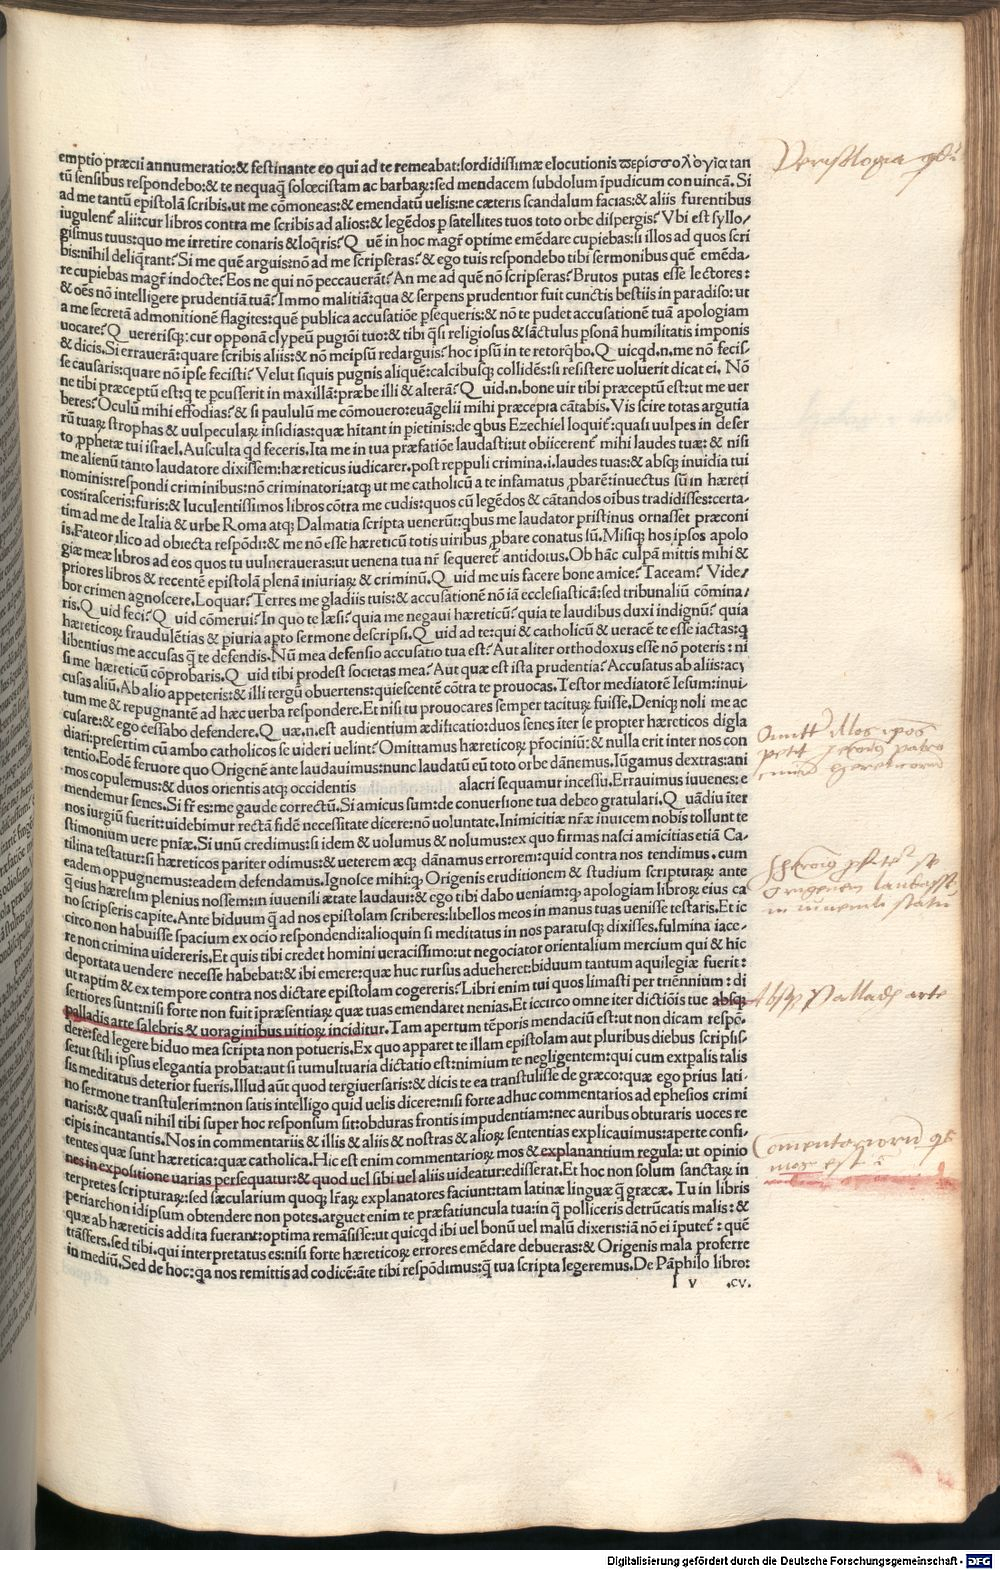 emptio præcii annumeratio:& festinante eo qui ad te remeabat:sordidissimæ elocutionis ϖερίσσολογία tan
tũ sensibus respondebo:& te nequaq̃ solœcistam ac barbaꝝ:sed mendacem subdolum ĩpudicum conuincã. Si
ad me tantũ epistolã scribis.ut me cõmoneas:& emendatũ uelis:ne cæteris scandalum facias:& aliis furentibus
iugulent̃ alii:cur libros contra me scribis ad alios:& legẽdos ꝑ satellites tuos toto orbe dispergis? Vbi est syllo/
gismus tuus:quo me irretire conaris & loq̃ris? Quẽ in hoc magr̃ optime emẽdare cupiebas:si illos ad quos scri
bis:nihil deliq̃rant? Si me quẽ arguis:nõ ad me scripseras? & ego tuis respondebo tibi sermonibus quẽ emẽda-
re cupiebas magr̃ indocte? Eos ne qui nõ peccauerãt? An me ad quẽ nõ scripseras? Brutos putas esse lectores:
& oẽs nõ intelligere prudentiã tuã? Immo malitiã:qua & serpens prudentior fuit cunctis bestiis in paradiso: ut
a me secretã admonitionẽ flagites:quẽ publica accusatiõe ꝑsequeris:& nõ te pudet accusationẽ tuã apologiam
uocare? Quererisq;:cur opponã clypeũ pugiõi tuo:& tibi q̃si religiosus & sãctulus ꝑsonã humilitatis imponis
& dicis.Si erraueram:quare scribis aliis:& nõ meipsũ redarguis? hoc ipsũ in te retorq̃bo.Quicqd.n.me nõ fecis-
se causaris:quare nõ ipse fecisti? Velut siquis pugnis aliquẽ:calcibusq; collidẽs:si resistere uoluerit dicat ei. Nõ
ne tibi præceptũ est:q te ꝑcusserit in maxillã:præbe illi & alterã? Quid.n.bone uir tibi præceptũ est:ut me uer
beres? Oculũ mihi effodias? & si paululũ me cõmouero:euãgelii mihi præcepta cãtabis. Vis scire totas argutia
rũ tuaꝝ strophas & uulpeculaꝝ insidias:quæ hĩtant in pietinis:de qbus Ezechiel loquit̃: quasi uulpes in deser
to ꝓphetæ tui israel.Ausculta qd feceris.Ita me in tua præfatiõe laudasti:ut obiicerent̃ mihi laudes tuæ: & nisi
me alienũ tanto laudatore dixissem:hæreticus iudicarer.post reppuli crimina.i.laudes tuas:& absq; inuidia tui
nominis:respondi criminibus:nõ criminatori:atq; ut me catholicũ a te infamatus ꝓbarẽ:inuectus sũ in hæreti
cos:irasceris:furis:& luculentissimos libros cõtra me cudis:quos cũ legẽdos & cãtandos oibus tradidisses:certa-
tim ad me de Italia & urbe Roma atq; Dalmatia scripta uenerũt:qbus me laudator pristinus ornasset præconi
is.Fateor ilico ad obiecta respõdi:& me nõ esse hæreticũ totis uiribus ꝓbare conatus sũ. Misiq; hos ipsos apolo
giæ meæ libros ad eos quos tu uulneraueras:ut uenena tua nr̃ sequeret̃ antidotus.Ob hãc culpã mittis mihi &
priores libros & recentẽ epistolã plenã iniuriaꝝ & criminũ.Quid me uis facere bone amice? Taceam? Vide/
bor crimen agnoscere.Loquar? Terres me gladiis tuis:& accusationẽ nõ iã ecclesiasticã:sed tribunaliũ cõmina/
ris.Quid feci? Quid cõmerui? In quo te læsi? quia me negaui hæreticũ? quia te laudibus duxi indignũ? quia
hæreticoꝝ fraudulẽtias & piuria apto sermone descripsi.Quid ad te:qui & catholicũ & ueracẽ te esse iactas:q
libentius me accusas q̃ te defendis. Nũ mea defensio accusatio tua est? Aut aliter orthodoxus esse nõ poteris : ni
si me hæreticũ cõprobaris.Quid tibi prodest societas mea? Aut quæ est ista prudentia? Accusatus ab aliis:ac
cusas aliũ.Ab alio appeteris:& illi tergũ obuertens:quiescentẽ cõtra te prouocas.Testor mediatorẽ Iesum:inui-
tum me & repugnantẽ ad hæc uerba respondere.Et nisi tu prouocares semper taciturꝰ fuisse. Deniq; noli me ac
cusare:& ego cessabo defendere.Quæ.n.est audientium ædificatio:duos senes ĩter se propter hæreticos digla
diari:presertim cũ ambo catholicos se uideri uelint? Omittamus hæreticoꝝ pr̃ociniũ:& nulla erit inter nos con
tentio.Eodẽ feruore quo Origenẽ ante laudauimus:nunc laudatũ cũ toto orbe dãnemus. Iũgamus dextras:ani
mos copulemus:& duos orientis atq; occidentis    alacri sequamur incessu.Errauimus iuuenes: e
mendemur senes.Si fr̃ es:me gaude correctũ.Si amicus sum:de conuersione tua debeo gratulari.Quãdiu ĩter
nos iurgiũ fuerit:uidebimur rectã fidẽ necessitate dicere:nõ uoluntate.Inimicitiæ nr̃æ inuicem nobis tollunt te
stimonium uere pniæ.Si unũ credimus:si idem & uolumus & nolumus:ex quo firmas nasci amicitias etiã Ca-
tilina testatur:si hæreticos pariter odimus:& ueterem æq; dãnamus errorem:quid contra nos tendimus . cum
eadem oppugnemus:eadem defendamus.Ignosce mihi:q; Origenis eruditionem & studium scripturaꝝ ante
q̃ eius hæresim plenius nossem:in iuuenili ætate laudaui:& ego tibi dabo ueniam:q; apologiam libroꝝ eius ca
no scripseris capite.Ante biduum q̃ ad nos epistolam scriberes:libellos meos in manus tuas uenisse testaris.Et ic
circo non habuisse spacium ex ocio respondendi:alioquin si meditatus in nos paratusq; dixisses.fulmina iace-
re non crimina uidereris.Et quis tibi credet homini ueracissimo:ut negociator orientalium mercium qui & hic
deportata uendere necesse habebat:& ibi emere:quæ huc rursus adueheret:biduum tantum aquilegiæ fuerit :
ut raptim & ex tempore contra nos dictare epistolam cogereris? Libri enim tui quos limasti per triẽnnium : di
sertiores sunt:nisi forte non fuit ip̃æsentiaꝝ quæ tuas emendaret nenias.Et iccirco omne iter dictiõis tue absq;
palladis arte salebris & uoraginibus uitioꝝ inciditur.Iam apertum tẽporis mendaciũ est:ut non dicam respõ-
dere:sed legere biduo mea scripta non potueris.Ex quo apparet te illam epistolam aut pluribus diebus scripsis-
se:ut stili ipsius elegantia probat:aut si tumultuaria dictatio est:nimium te negligentem:qui cum extpalis talis
sis meditatus deterior fueris.Illud aũt quod tergiuersaris:& dicis te ea transtulisse de græco:quæ ego prius lati-
no sermone transtulerim:non satis intelligo quid uelis dicere:nisi forte adhuc commentarios ad ephesios crimi
naris:& quasi nihil tibi super hoc responsum sit:obduras frontis impudentiam:nec auribus obturaris uoces re
cipis incantantis.Nos in commentariis & illis & aliis & nostras & alioꝝ sententias explicauimus:aperte confi-
tentes quæ sunt hæretica:quæ catholica.Hic est enim commentarioꝝ mos & explanantium regula: ut opinio
nes in expositione uarias persequatur:& quod uel sibi uel aliis uideatur:edisserat.Et hoc non solum sanctaꝝ in
terpretes scripturaꝝ:sed sæcularium quoq; lr̃aꝝ explanatores faciunt:tam latinæ linguæ q̃ græcæ. Tu in libris
periarchon idipsum obtendere non potes.arguet enim te præfatiuncula tua:in q̃ polliceris detrũcatis malis: &
quæ ab hæreticis addita fuerant:optima remãsisse:ut quicqd ibi uel bonũ uel malũ dixeris:iã nõ ei ĩputet̃ : quẽ
trãsfers.sed tibi.qui interpretatus es:nisi forte hæreticoꝝ errores emẽdare debueras:& Origenis mala proferre
in mediũ.Sed de hoc:qa nos remittis ad codicẽ:ãte tibi respõdimus:q̃ tua scripta legeremus.De Pãphilo libro:
I v    .cv.
Perissologia
Omitt illos
laudasse
in iuuenili statu
Absq; Palladis arte
Comentariorũ
mos est
Digitalisierung gefördert durch die Deutsche Forschungsgemeinschaft - DFG